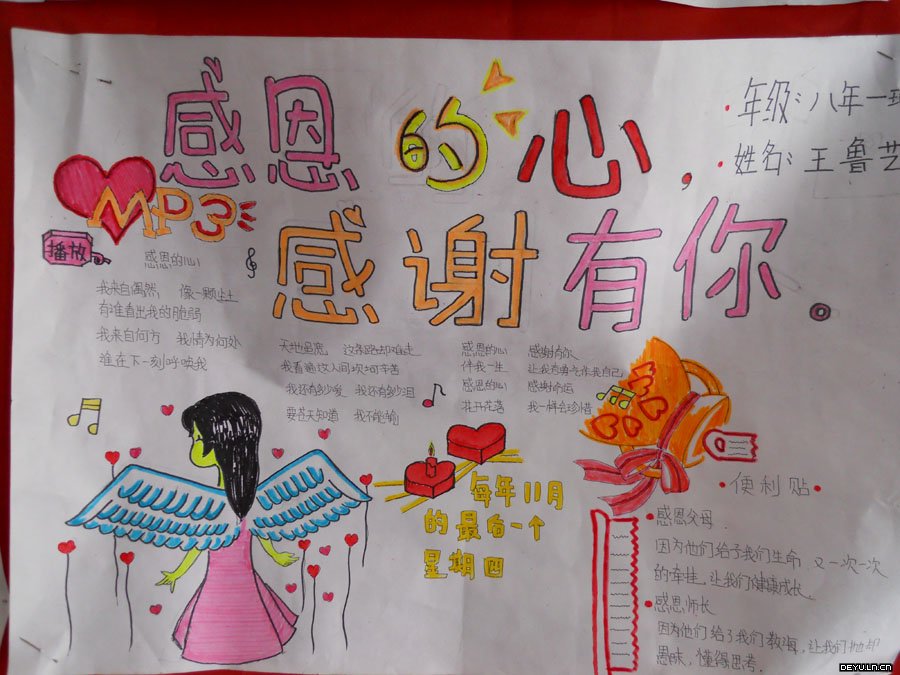 感恩的心,
感谢有你。
年级:八年一班
姓名:王鲁艺
MP3
播放
感恩的心
我来自偶然, 像一颗尘土
有谁看出我的脆弱
我来自何方 我情为何处
谁在下一刻呼唤我
天地虽宽, 这条路却难走
我看遍这人间坎坷辛苦
我还有多少爱 我还有多少泪
要苍天知道 我不认输
感恩的心 感谢有你
伴我一生 让我有勇气作我自己
感恩的心 感谢命运
花开花落 我一样会珍惜
每年11月
的最后一个
星期四
·便利贴·
感恩父母.
因为他们给予我们生命,又一次一次
的牵挂,让我们健康成长.
感恩师长
因为他们给了我们教诲,让我们抛却
愚昧,懂得思考.
DEYU.LN.CN